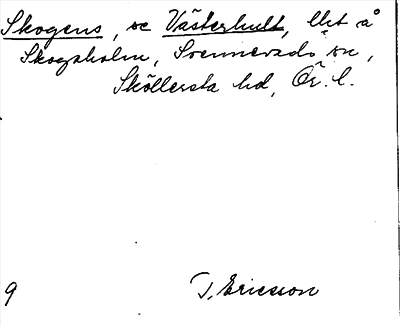 Skogens, se Västerhult, lht å
Skogaholm, Svennevads sn,
Sköllersta hd, Ör. l.
9 T. Ericsson